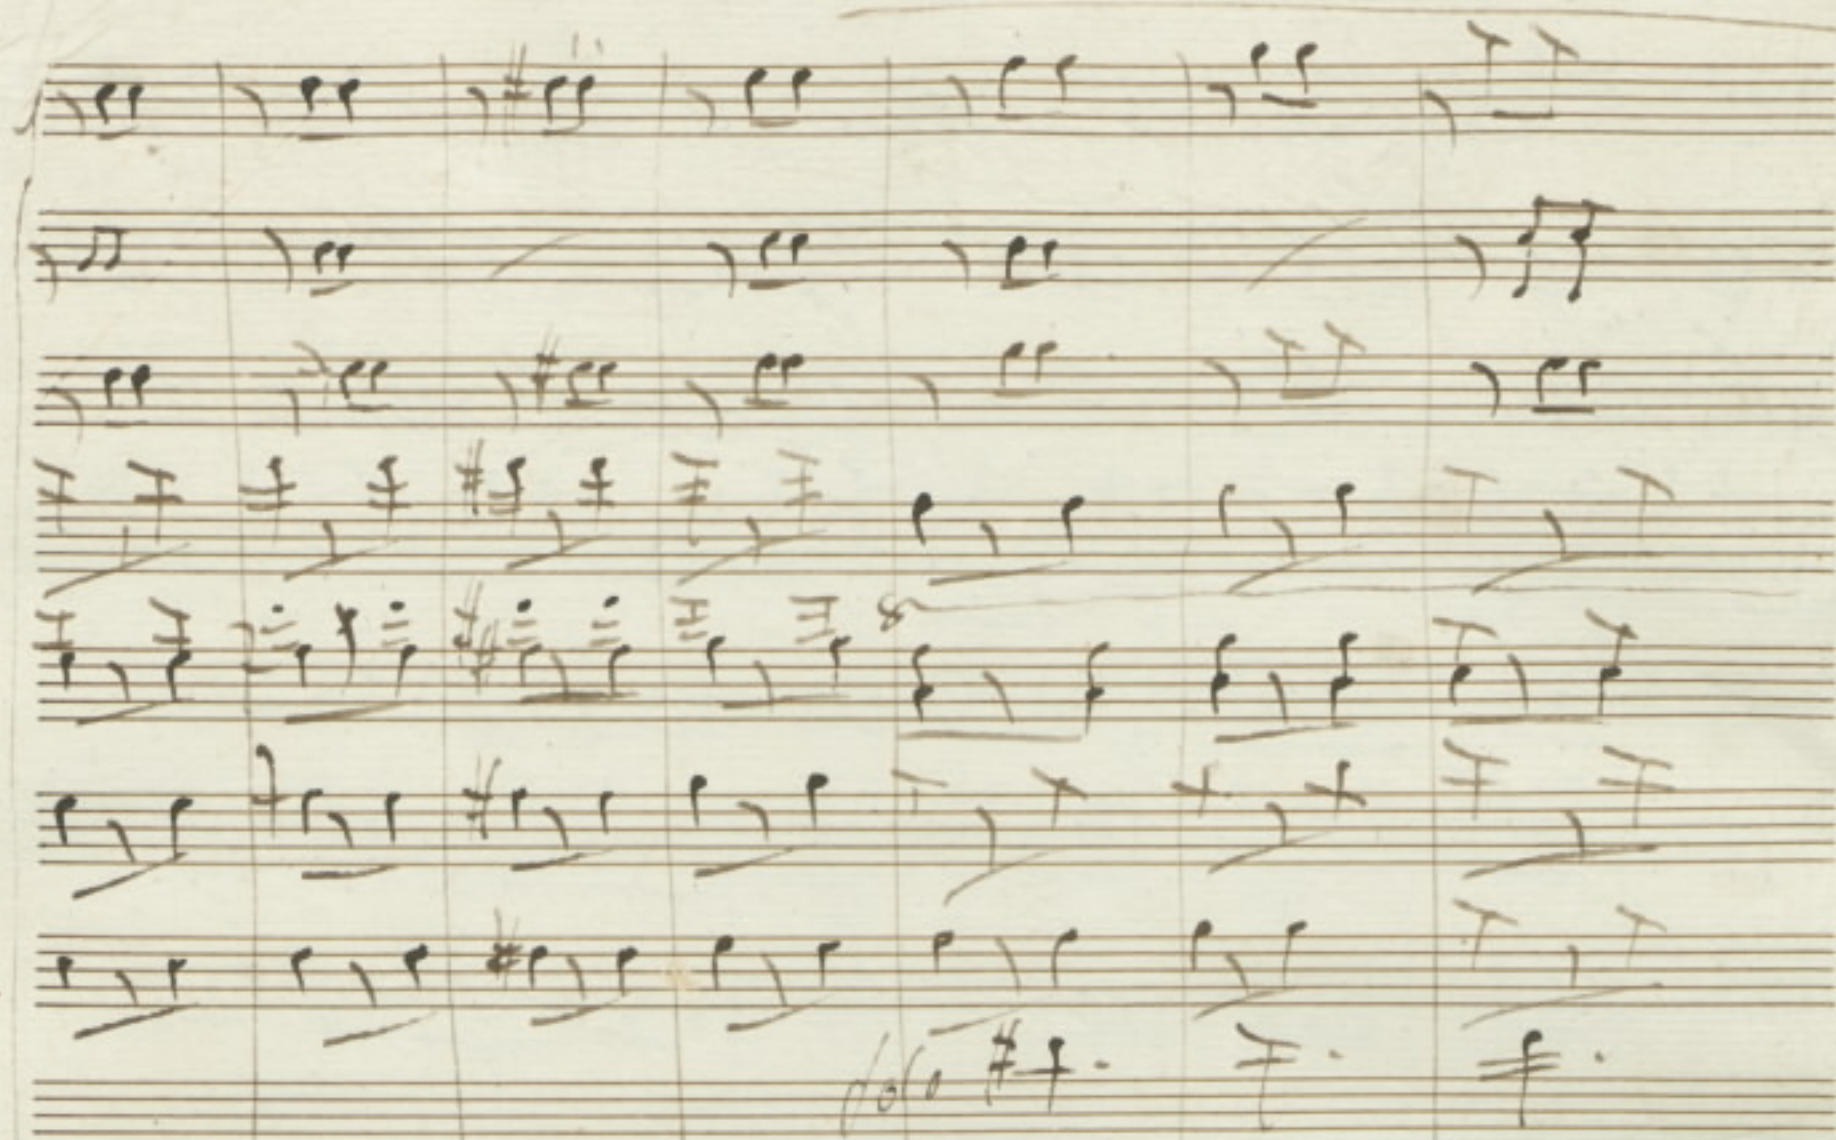 8
solo